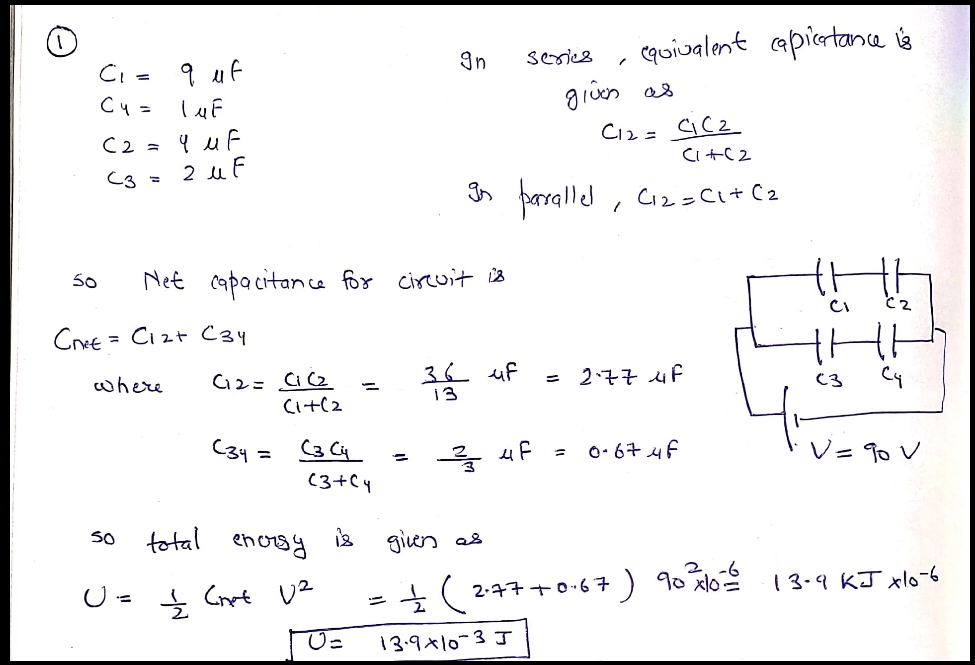 1
C1 = 9 uf
C4 = 1uF
C2 = 4 uF
C3 = 2 uF
In series, equivalent capicatance is
given as
C12 = C1C2 / C1+C2
In parallel, C12 = C1 + C2
so Net capacitance for circuit is
Cnet = C12+ C34
where C12 = C1C2 / C1+C2 = 36/13 uf = 2.77 uF
C34 = C3C4 / C3+C4 = 2/3 uF = 0.67 uF
C1 C2
C3 C4
V = 90 V
so total energy is given as
U = 1/2 Cnet V2 = 1/2 (2.77+0.67) 90^2 x10^-6 = 13.9 KJ x10^-6
U = 13.9x10^-3 J